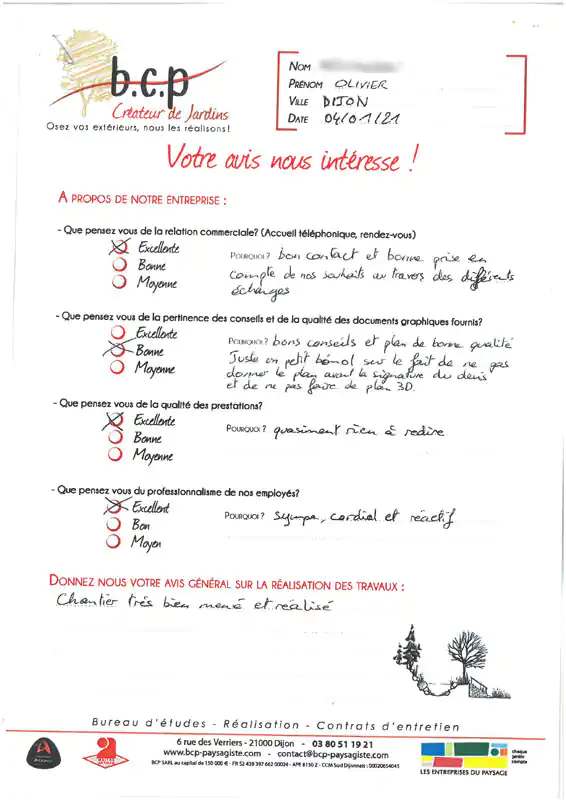 b.c.p
Créateur de Jardins
Osez vos extérieurs, nous les réalisons!
NOM
PRÉNOM OLIVIER
VILLE DIJON
DATE 04/01/21
Votre avis nous intéresse !
A PROPOS DE NOTRE ENTREPRISE :
- Que pensez vous de la relation commerciale? (Accueil téléphonique, rendez-vous)
Excellente
Bonne
Moyenne
POURQUOI? bon contact et bonne prise en
compte de nos souhaits au travers des différents
échanges
- Que pensez vous de la pertinence des conseils et de la qualité des documents graphiques fournis?
Excellente
Bonne
Moyenne
POURQUOI? bons conseils et plan de bonne qualité
Juste un petit bémol sur le fait de ne pas
donner le plan avant la signature du devis
et de ne pas faire de plan 3D.
- Que pensez vous de la qualité des prestations?
Excellente
Bonne
Moyenne
POURQUOI? quasiment rien à redire
- Que pensez vous du professionnalisme de nos employés?
Excellent
Bon
Moyen
POURQUOI? sympa, cordial et réactif
DONNEZ NOUS VOTRE AVIS GÉNÉRAL SUR LA RÉALISATION DES TRAVAUX :
Chantier très bien mené et réalisé
Bureau d'études - Réalisation - Contrats d'entretien
6 rue des Verriers - 21000 Dijon - 03 80 51 19 21
www.bcp-paysagiste.com - contact@bcp-paysagiste.com
BCP SARL au capital de 150 000 € - FR 52 439 397 662 00034 - APE 8130 Z - CCM Sud Dijonnais : 00020654045
LES ENTREPRISES DU PAYSAGE
chaque
jardin
compte